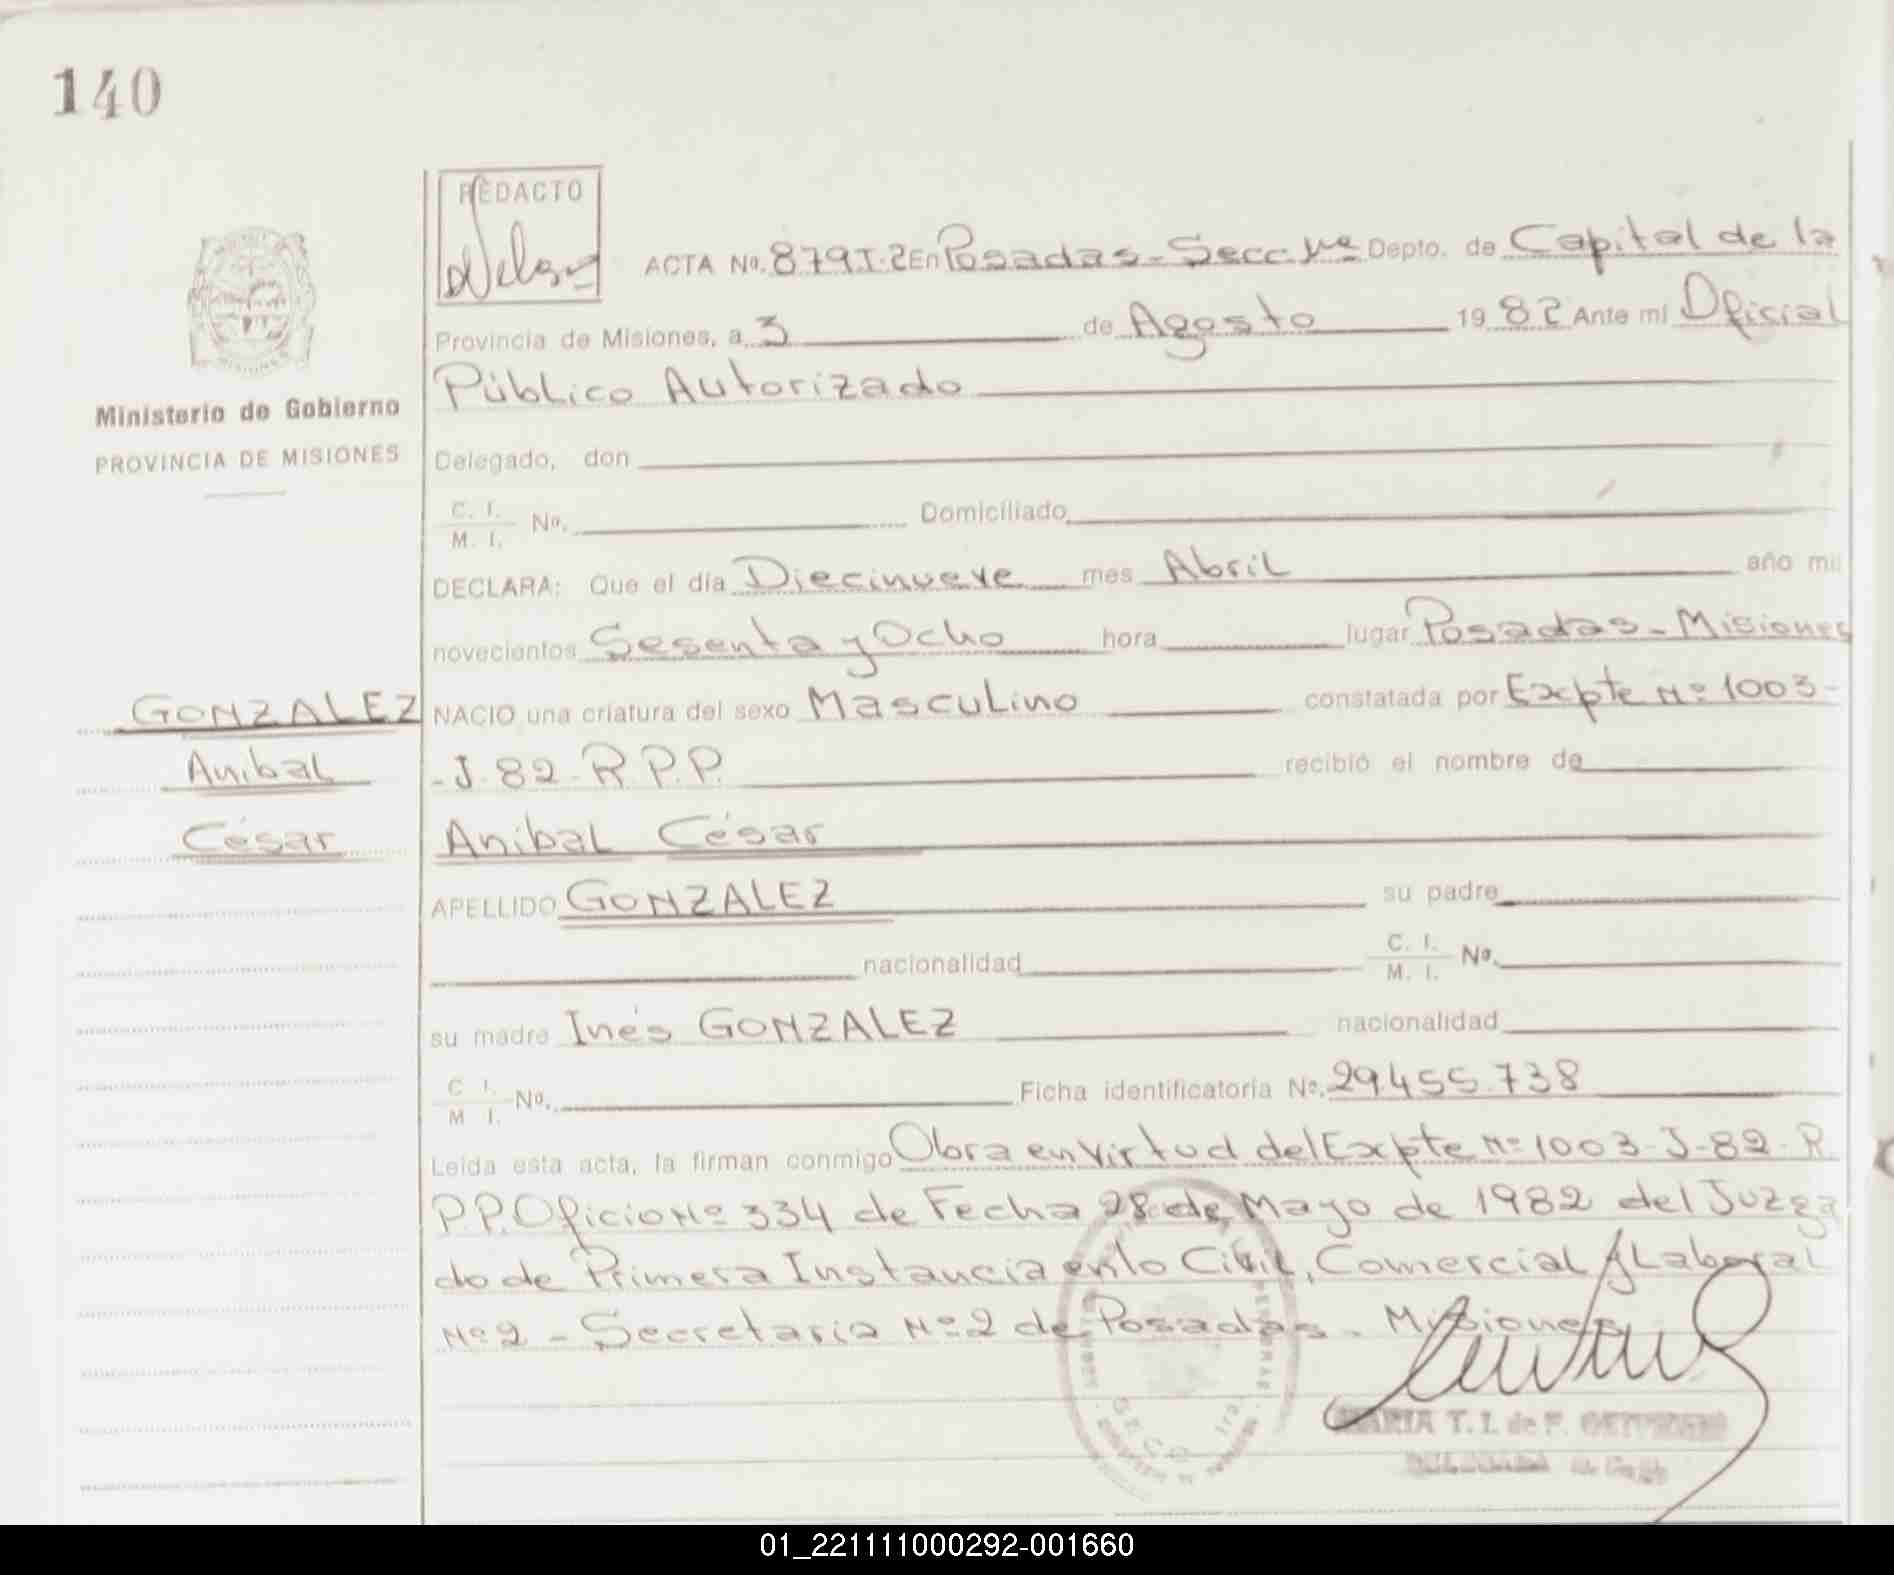 140
REDACTO
ACTA No. 879 T. 2 En Posadas - Secc. 1ra Depto. de Capital de la
Provincia de Misiones, a 3 de Agosto 19 82 Ante mi Oficial
Público Autorizado
Ministerio de Gobierno
PROVINCIA DE MISIONES
Delegado, don
C. I. / M. I. No. Domiciliado
DECLARA: Que el día Diecinueve mes Abril año mil
novecientos Sesenta y Ocho hora lugar Posadas - Misiones
GONZALEZ
NACIO una criatura del sexo Masculino constatada por Excpte Nº 1003-
Anibal
-J-82-R.P.P. recibió el nombre de
César
Anibal César
APELLIDO GONZALEZ su padre
nacionalidad C. I. / M. I. No.
su madre Inés GONZALEZ nacionalidad
C I. / M I. No. Ficha identificatoria No. 29.455.738
Leída esta acta, la firman conmigo Obra en virtud del Excpte Nº 1003-J-82-R.
P.P. Oficio Nº 334 de Fecha 28 de Mayo de 1982 del Juzga
do de Primera Instancia en lo Civil, Comercial y Laboral
Nº 2 - Secretaria Nº 2 de Posadas - Misiones
SECC. 1ra.
MARIA T. I. de F.
01_221111000292-001660